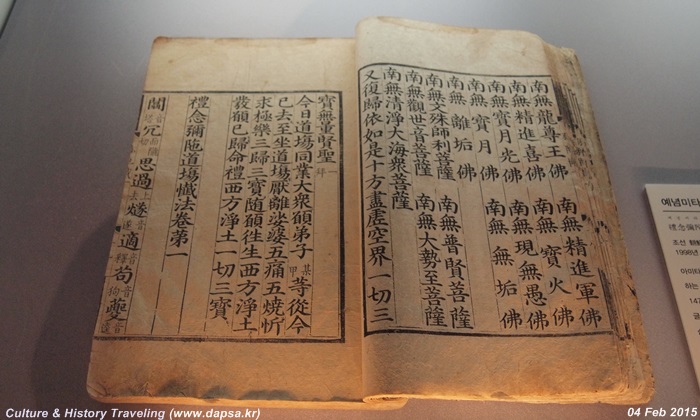 南無龍尊王佛 南無精進軍佛
南無精進喜佛 南無寶火佛
南無寶月光佛 南無現無愚佛
南無寶月佛 南無無垢佛
南無離垢佛
南無文殊師利菩薩 南無普賢菩薩
南無觀世音菩薩 南無大勢至菩薩
南無清淨大海衆菩薩
又復歸依如是十方盡虛空界一切三
寶無量賢聖 一拜
今日道場同業大衆願弟子某甲等從今
已去至坐道場厭離娑婆五痛五燒忻
求極樂三歸三寶隨願徃生西方淨土
發願已歸命禮西方淨土一切三寶
禮念彌陁道場懺法卷第一
闔 冗 思過 燧 適 荀 夔
예념미타
禮念彌陀
조선
1998년
아미타
하는
Culture & History Traveling (www.dapsa.kr)
04 Feb 2015